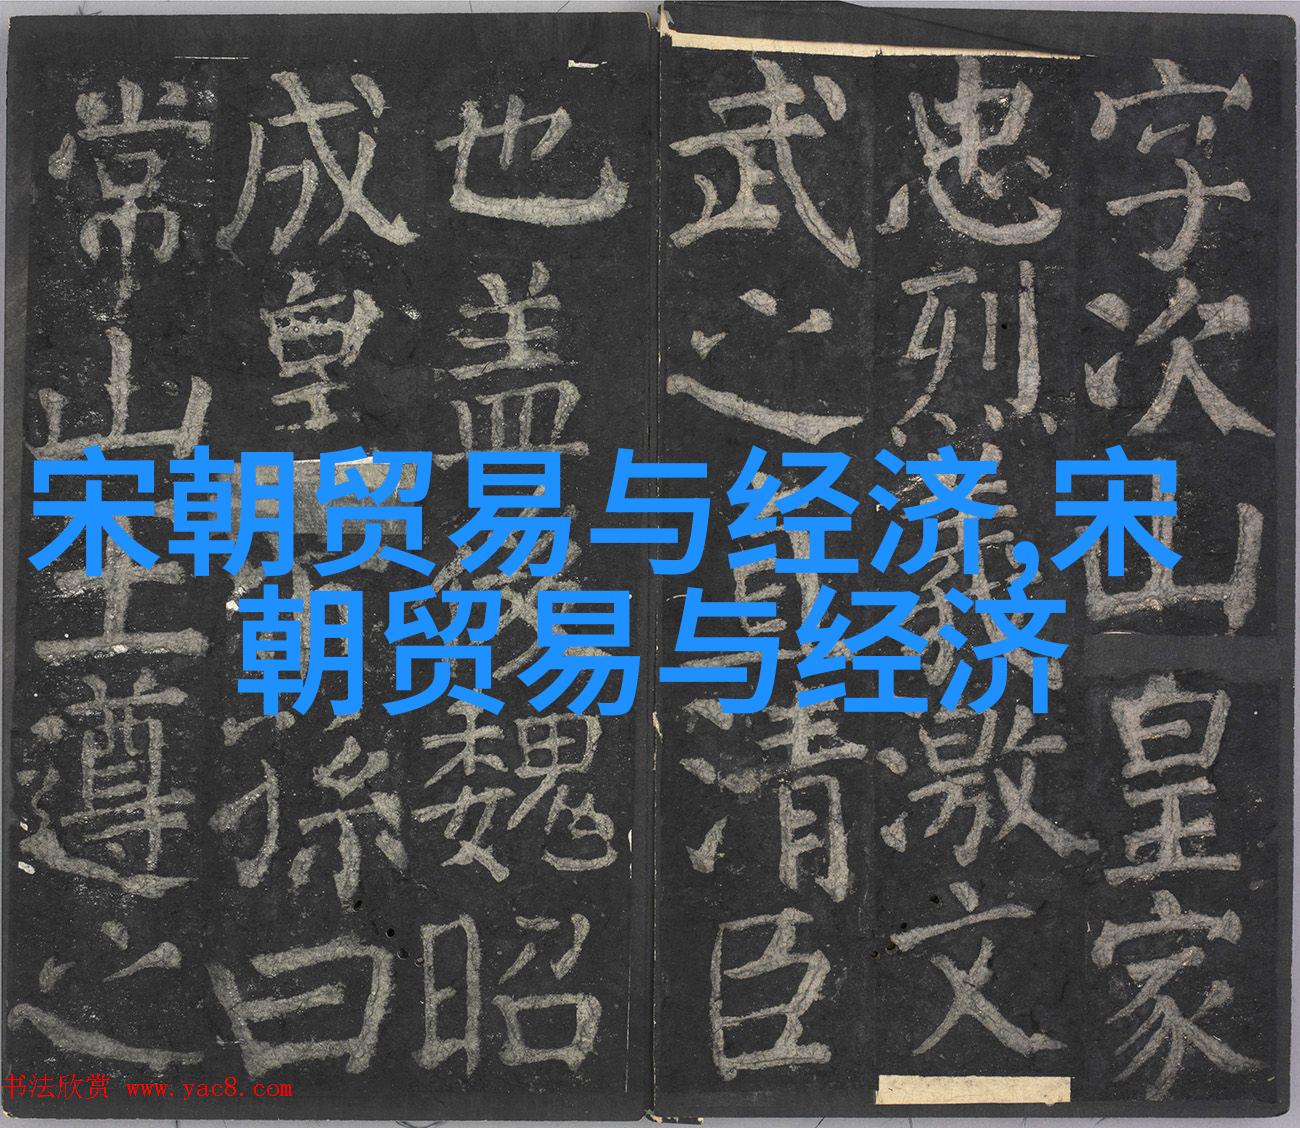 宋朝贸易与经济,宋
朝贸易与经济
字次山皇家
忠烈義激文
武之清臣
也盖魏昭
成皇孫曰
常山王遵之
书法欣赏 www.yac8.com